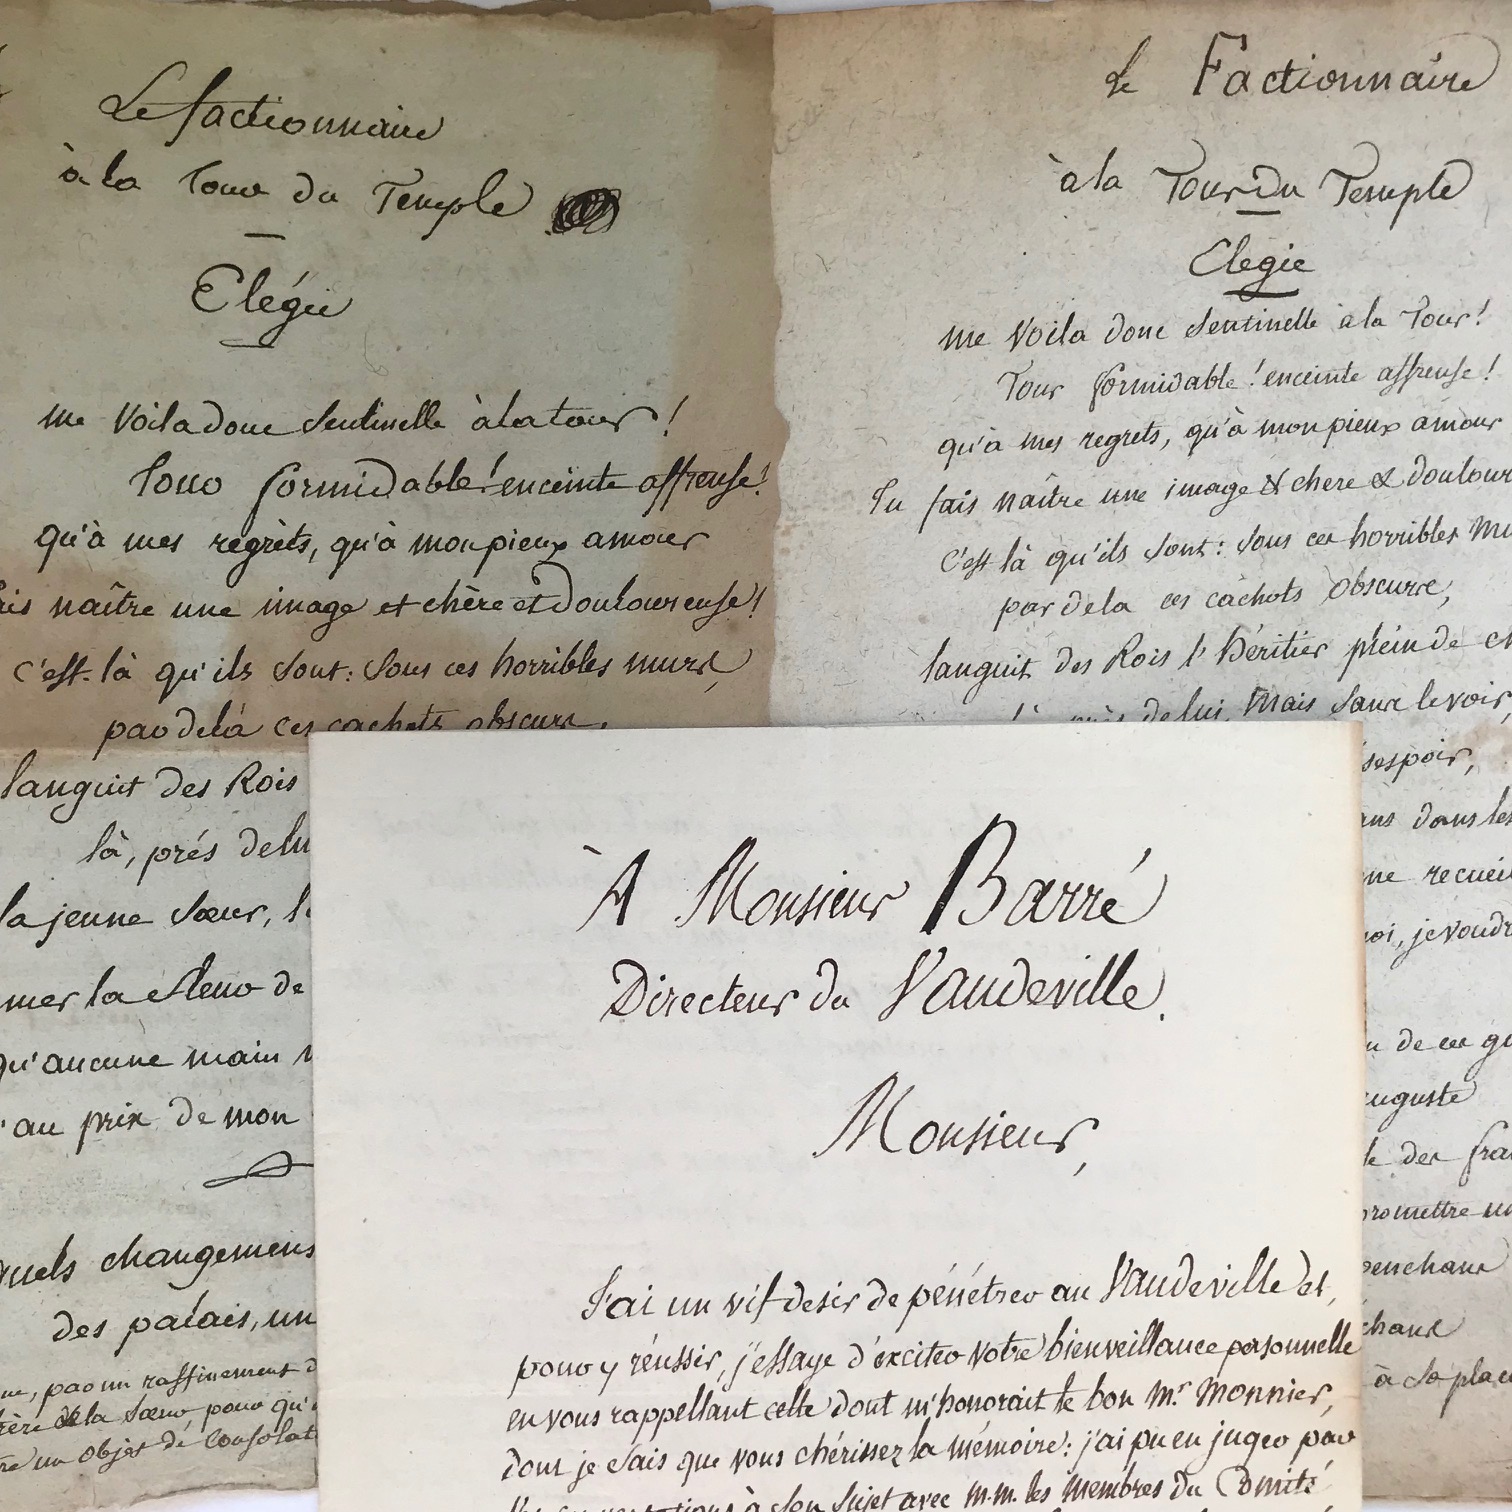 Le factionnaire
à la Tour du Temple
Elégie
me voila donc sentinelle à la tour!
Tour formidable! enceinte affreuse!
qu'à mes regrèts, qu'à mon pieux amour
naître une image et chère et douloureuse!
c'est là qu'ils sont: sous ces horribles murs,
par delà ces cachots obscurs,
languit des Rois
là, prés de lui
la jeune sœur,
la fleur de
qu'aucune main
au prix de mon
changemens
des palais, un
par un raffinement
de la sœur, pour qu'
un objet de consolat
Le Factionnaire
à la Tour du Temple
Elegie
me voila donc sentinelle à la Tour!
Tour formidable! enceinte affreuse!
qu'à mes regrets, qu'à mon pieux amour
Tu fais naître une image & chere & doulour
c'est là qu'ils sont: sous ces horribles mu
par dela ces cachots obscurs,
languit des Rois l'héritier plein de ch
près de lui, mais sans le voir,
sespoir,
dans les
recueil
oi, je voudr
de ces
auguste
des fra
promettre un
penchans
chans
à sa place
À Monsieur Barré
Directeur du Vaudeville.
Monsieur,
J'ai un vif desir de pénétrer au Vaudeville et,
pour y réussir, j'essaye d'exciter votre bienveillance personnelle
en vous rappellant celle dont m'honorait le bon Mr. Monnier,
dont je sais que vous chérissez la mémoire: j'ai pu en juger par
à son sujet avec M.M. les membres du Comité